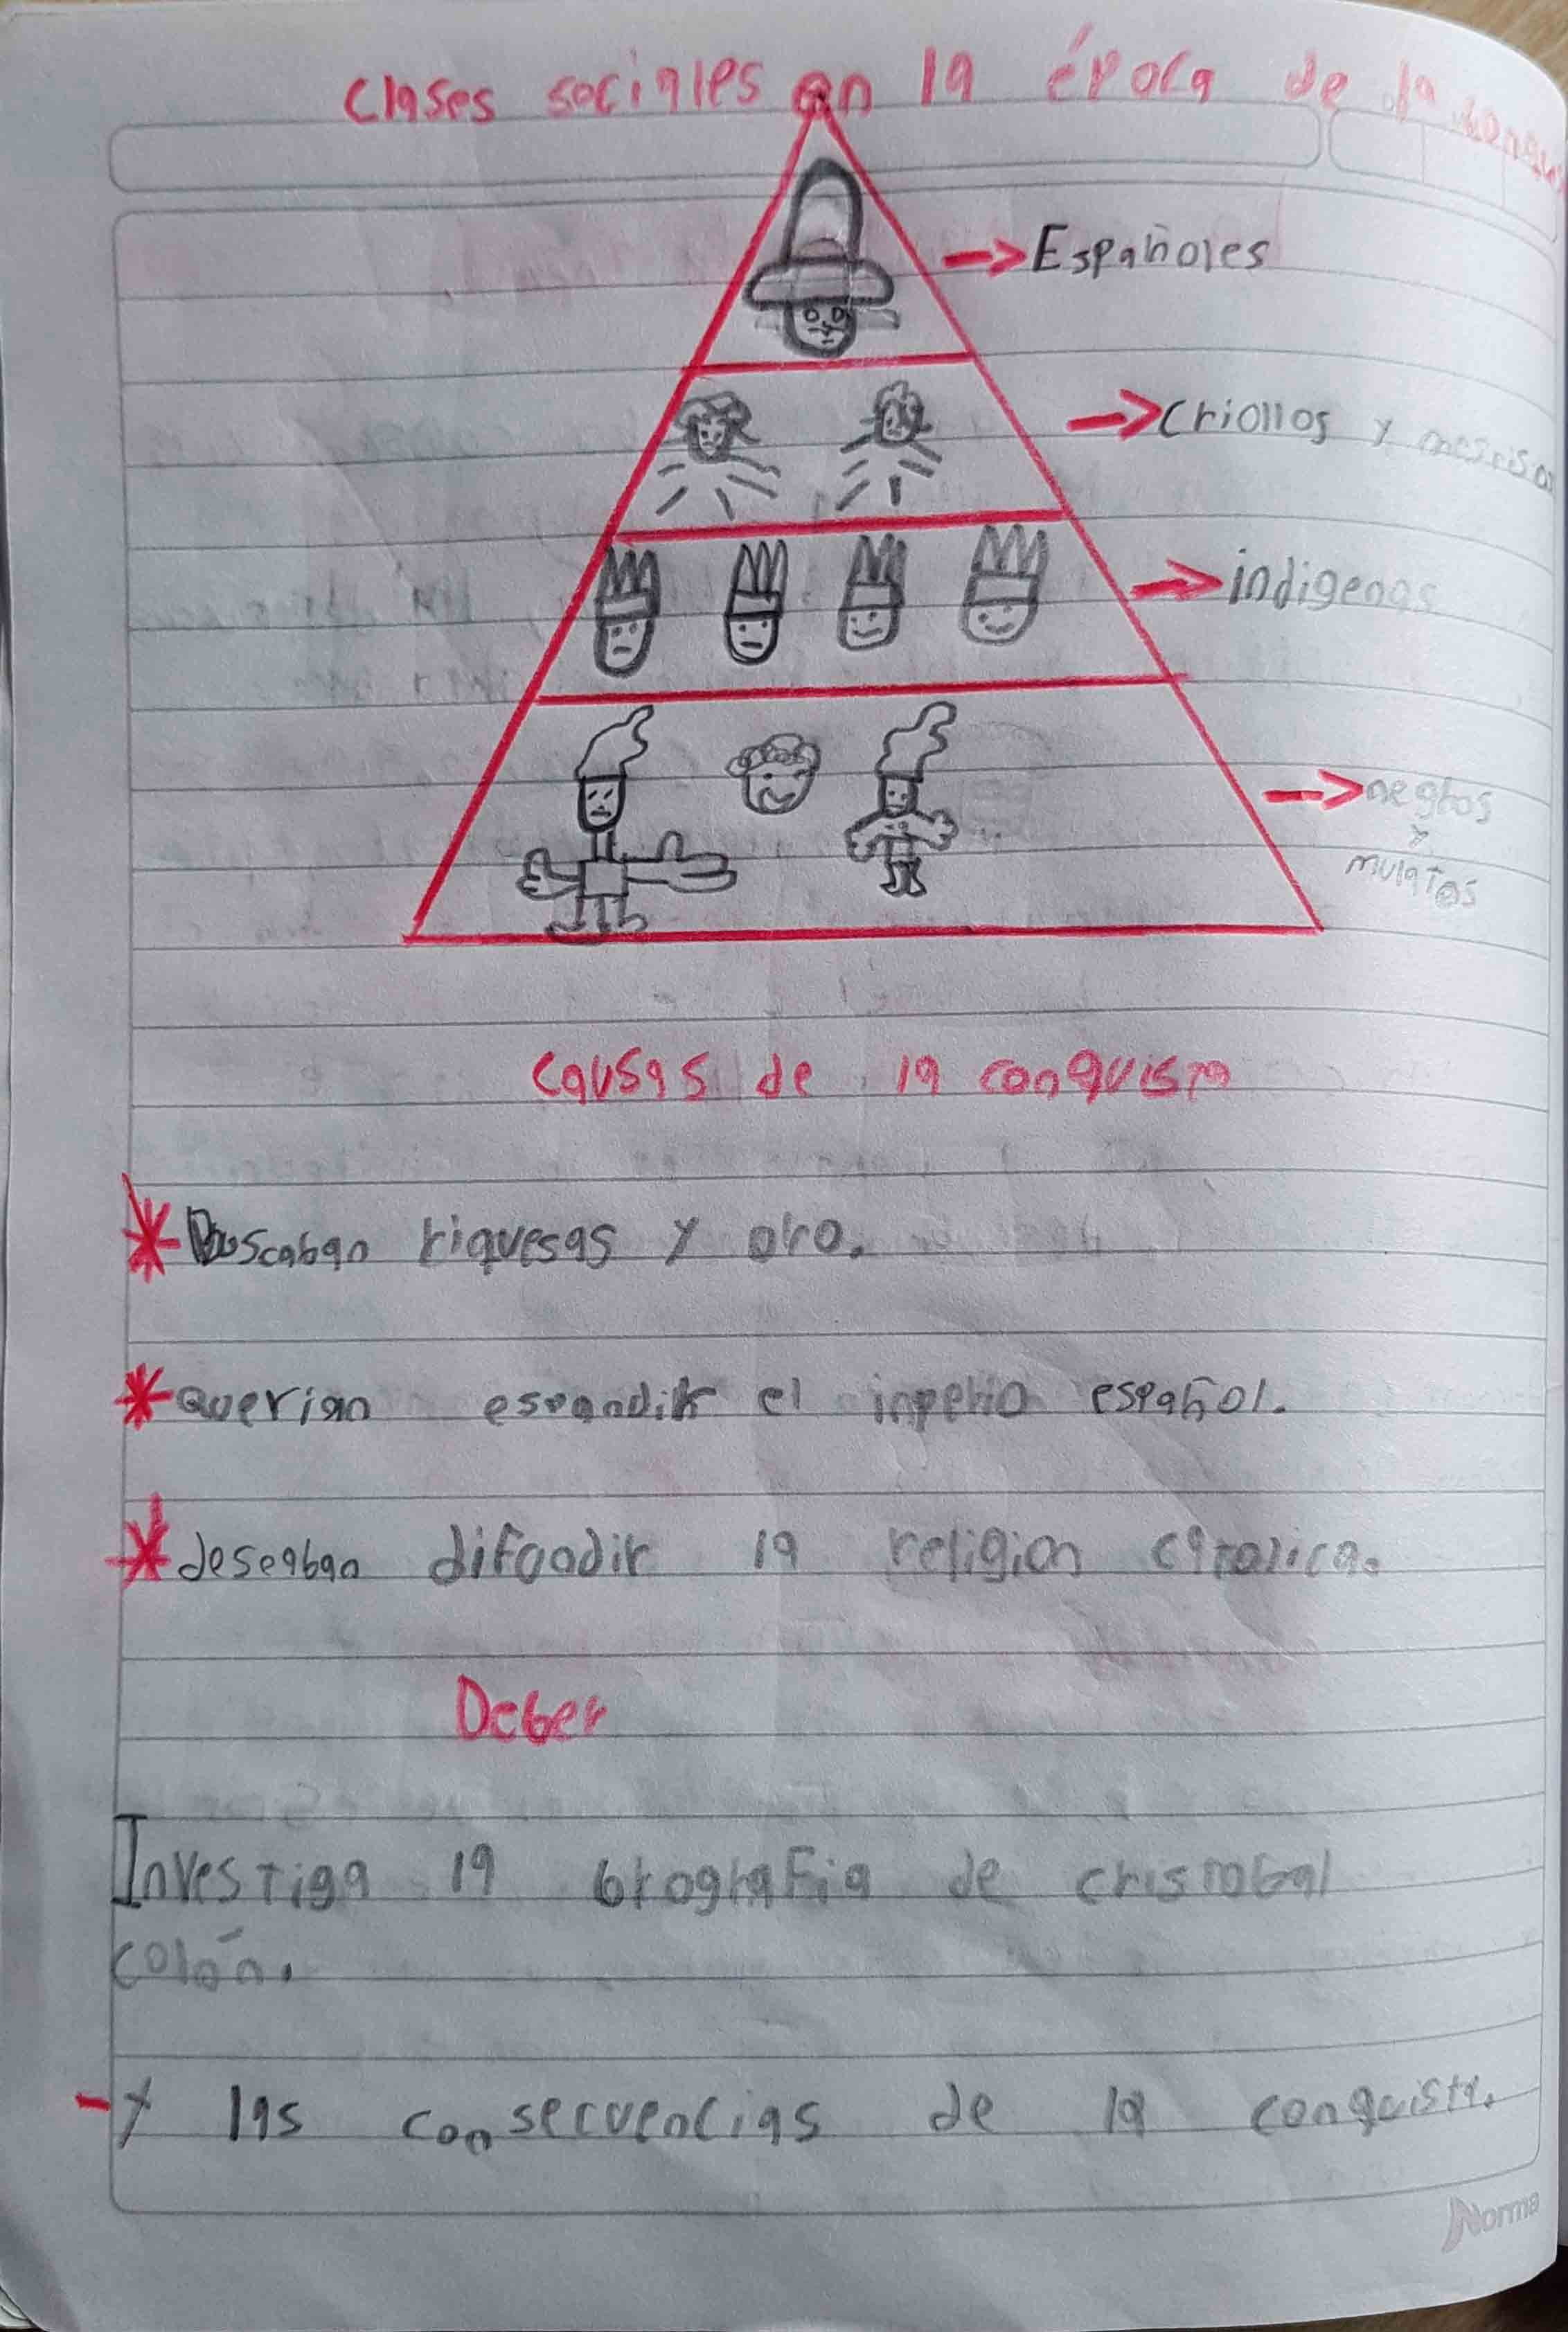 Clases sociales en la época de la
→Españoles
→criollos y mesrisos
→indigenas
→negros
y
mulatos
Causas de la conquista
*Buscaban riquesas y oro.
*querian espandir el inperio español.
*deseaban difundir la religion catolica.
Deber
Investiga la biografia de cristobal
colón.
-y las consecuencias de la conquista.
Norma